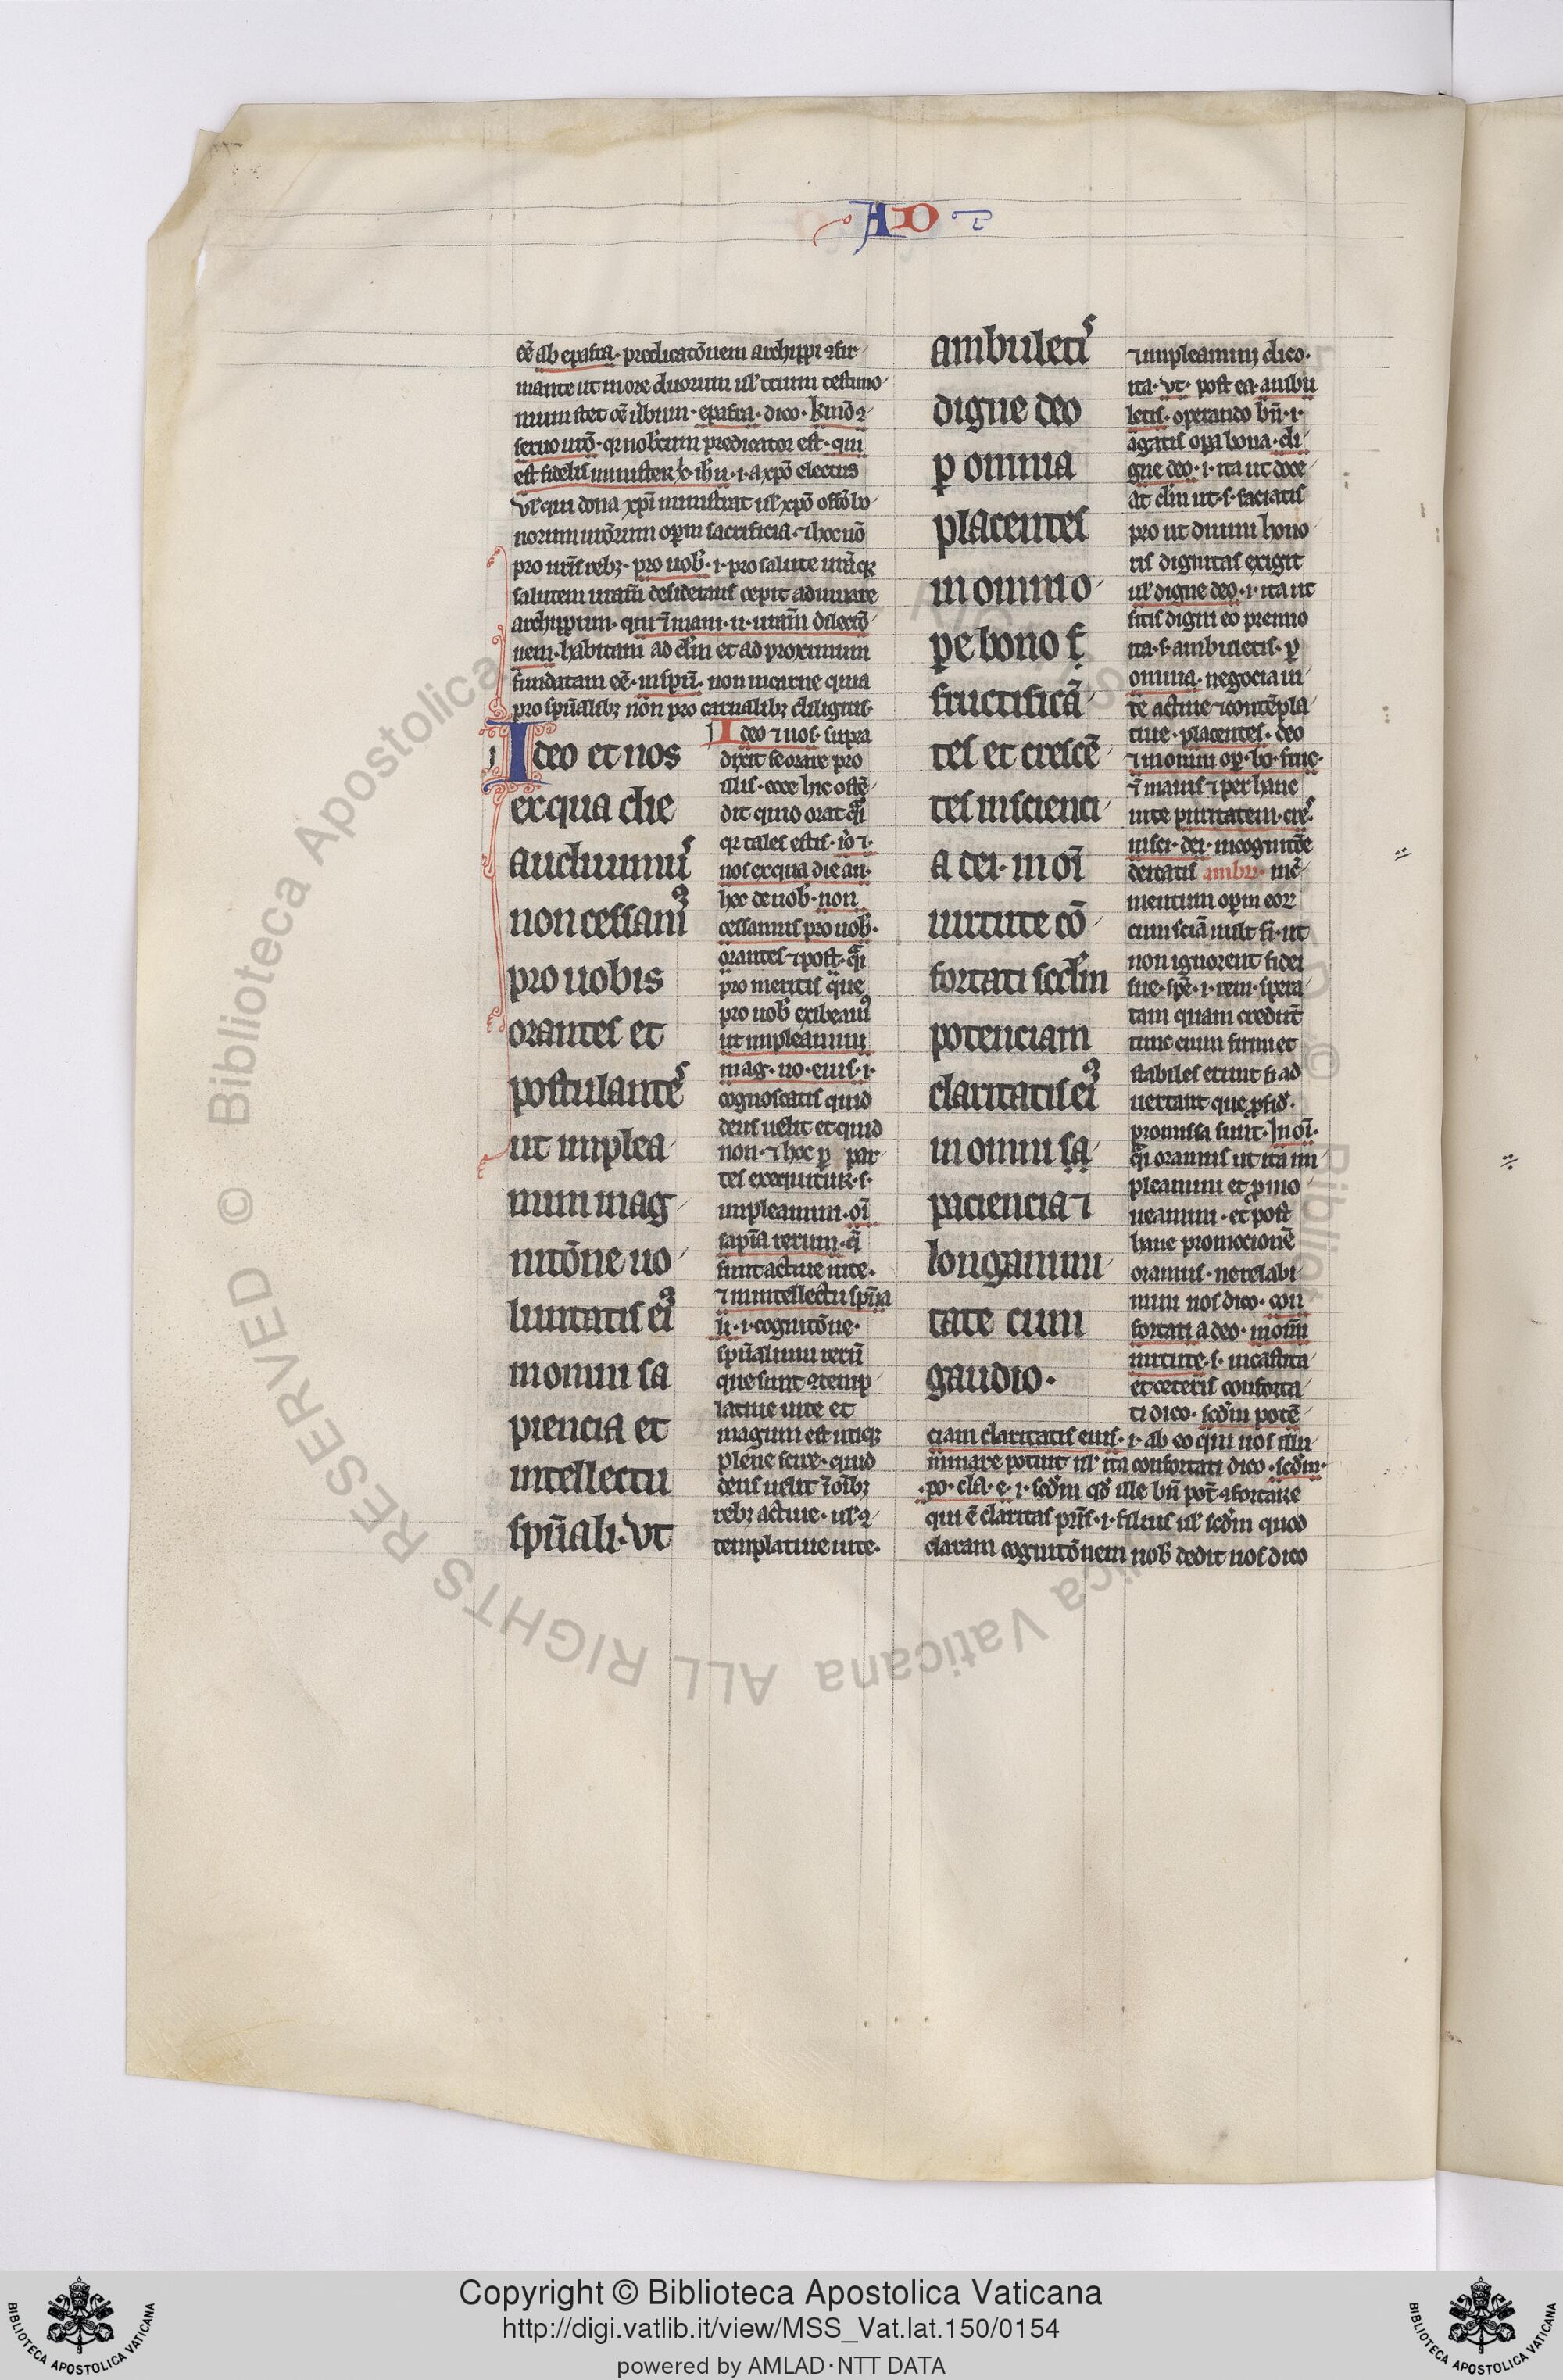 AD
eē ab epafra· predicatōnem archippi ꝯfir
mante ut more duorum ul' trium testimo
nium stet oē ūbum· epafra· dico· k'mō ꝯ
seruo nrō· qr nobcum predicator est· qui
est fidelis minister x̄· ihū· i· a xpō electus
Vl' qui dona xpī ministrat ul' xpō offō bo
norum nrōrum opum sacrificia· ⁊ hoc nō
pro ur̄is rebȝ· pro uob· i· pro salute urāqꝫ
salutem uram̄ desiderans cepit adiuuare
archippum· qui ⁊̄ mani· u· uram̄ dilectō
nem· habitam ad d'm et ad proximum
fundatam eē· in sp̄u· non in carne quia
pro sp̄ualibȝ non pro carnalibȝ diligitis·
Ideo et nos
ex qua die
audiuimus
non cessam9
pro uobis
orantes et
postulantes
ut implea
mini mag
nitōne uo
luntatis ei9
in omni sa
piencia et
intellectu
sp̄uali· Vt
Ideo ⁊ nos· supra
dixit se orare pro
illis· ecce hic ostē
dit quid orat q̄i
qr tales estis· iō ⁊·
nos ex qua die au·
hec de uob· non
cessamus pro uob·
orantes ⁊ post· q̄i
pro meritis que
pro uob exibeam9
ut impleamini
mag· uo· eius· i·
cognoscatis quid
deus uelit et quid
non· ⁊ hoc p par
tes exequitur· s·
impleamini· oī
sapīa rerum· q̄
sunt actiue uite·
⁊ in intellectu sp̄ua
li· i· cognitōne·
sp̄ualium rerū
que sunt ꝯtemp
latiue uite et
magnum est utiqꝫ
plene scire· quid
deus uelit ⁊̄ oībȝ
rebȝ actiue· ul' ꝯ
templatiue uite·
ambuletis
digne deo
p omnia
placentes
in omni o
pe bono f
fructificā
tes et crescē
tes in scienci
a dei· in oī
uirtute cō
fortati sed'm
potenciam
claritatis ei9
in omni sa
paciencia ⁊
longanimi
tate cum
gaudio·
⁊ impleamini dico·
ita· vt· post ea· ambu
letis· operando bn̄· i·
agatis opa bona· di
gne deo· i· ita ut doce
at d'm ut· s· faciatis
pro ut diuini hono
ris dignitas exigit
ul' digne deo· i· ita ut
sitis digni eo premio
ita· s· ambuletis· p
omnia· negocia ui
te actiue ⁊ contēpla
tiue· placentes· deo
⁊ in omni op· bo· fruc·
⁊̄ manis ⁊ per hanc
uite puritatem· cres·
in sci· dei· in cognitōe
deitatis ambu· inc̄
mentum opum eor
cum sciā uult fi· ut
non ignorent fidei
sue· spē· i· rem· spera
tam quam credūt
tunc enim firmi et
stabiles erunt si ad
uertant que p̄fid·
promissa sunt· In oī·
q̄i oramus ut ita im
pleamini et pmo
ueamini· et post
hanc promocionē
oramus· ne relabi
mini uos dico· con
fortati a deo· in om̄i
uirtute· s· in castita
et ceteris conforta
ti dico· sed'm potē
ciam claritatis eius· i· ab eo qui uos illu
minare potuit ul' ita confortati dico· sed'm·
·po· cla· e· i· sed'm qd' ille bn̄ pot̄ ꝯfortare
qui ē claritas pr̄is· i· filius ul' sed'm quod
claram cognitōnem uob dedit uos dico
Copyright © Biblioteca Apostolica Vaticana
http://digi.vatlib.it/view/MSS_Vat.lat.150/0154
powered by AMLAD·NTT DATA